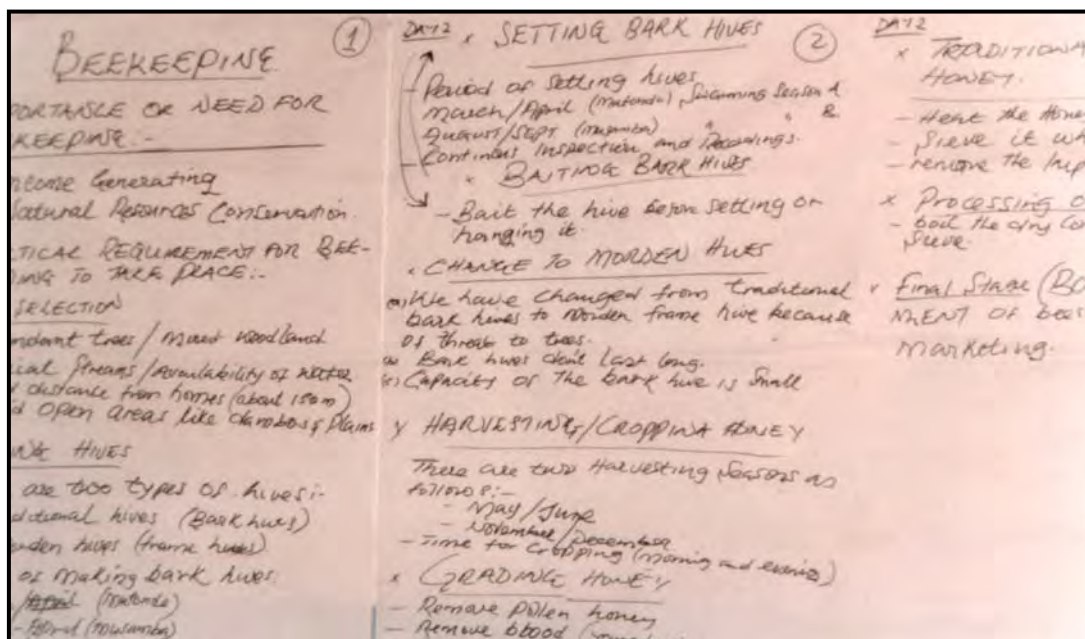 BEEKEEPING
①
PORTANCE OR NEED FOR
KEEPING:-
ncome Generating
atural Resources Conservation.
TICAL REQUIREMENT FOR BEE-
ING TO TAKE PLACE:-
SELECTION
ndant trees / mixed woodland
ical Streams / Availability of water
distance from homes (about 150m)
d open areas like dambos & plains
HIVES
are two types of hives:-
ditional hives (Bark hives)
den hives (frame hives)
of making bark hives
/April (matonde)
(musamba)
DAY 2 x SETTING BARK HIVES
②
- Period of setting hives
March/April (matonde) Swarming Season A
August/SEPT (musamba) " " B.
- Continous Inspection and Recordings.
x BAITING BARK HIVES
- Bait the hive before setting or
hanging it.
x CHANGE TO MORDEN HIVES
We have changed from traditional
bark hives to Morden frame hive because
of threat to trees.
Bark hives don't last long.
Capacity of the bark hive is Small
x HARVESTING/CROPPING HONEY
There are two Harvesting Seasons as
follows:-
- May/June
- November/December
- Time for cropping (morning and evenings)
x GRADING HONEY
- Remove pollen honey
- Remove
DAY 2
x TRADITIONA
HONEY.
- Heat the Hone
- Sieve it
- remove the
x Processing o
- boil the
Sieve.
x Final Stage (
MENT OF bees
Marketing.